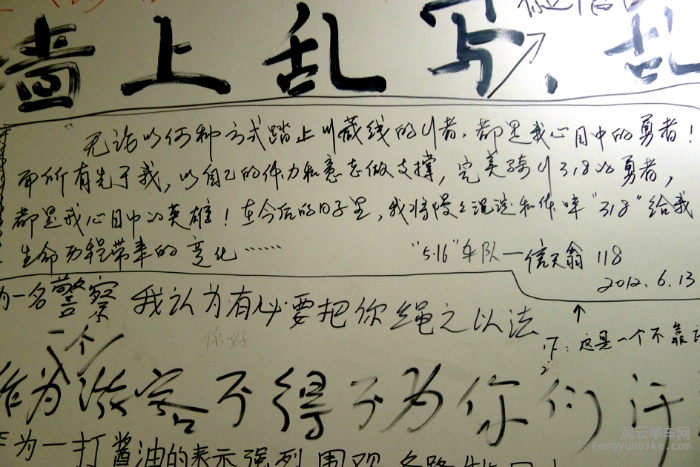 墙上乱写、乱
"无论以何种方式踏上川藏线的行者,都是我心目中的勇者!
而所有先于我,以自己的体力和意志做支撑,完美骑行318的勇者,
都是我心目中的英雄!在今后的日子里,我将慢慢沉淀和体味"318"给我
生命历程带来的变化……
"5·16"车队—信天翁 118
2012.6.13
为一名警察 我认为有必要把你绳之以法
你好
这是一个不靠
一个
作为游客不得不为你们汗
作为一打酱油的表示强烈围观
风云单车网
Fengyunbike.com